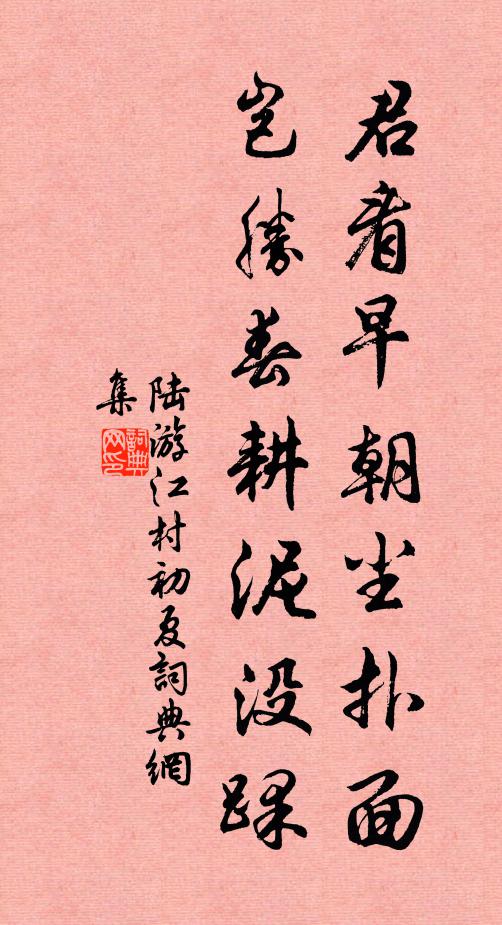 君看早朝尘扑面
岂胜春耕泥没踝
陆游江村初夏詞典網
集
詞典
网印